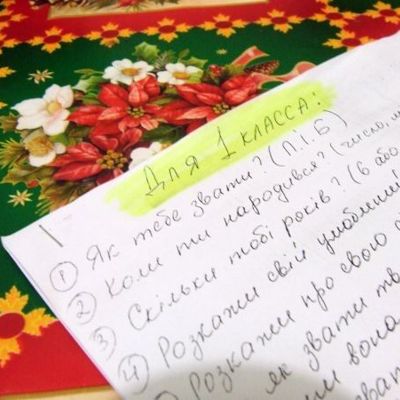 Для 1 класса:
1 Як тебе звати? (П.І.Б)
2 Коли ти народився? (число,
3 Скільки тобі років? (6 або
4 Розкажи свій улюблений
Розкажи про свою
як звати
вона